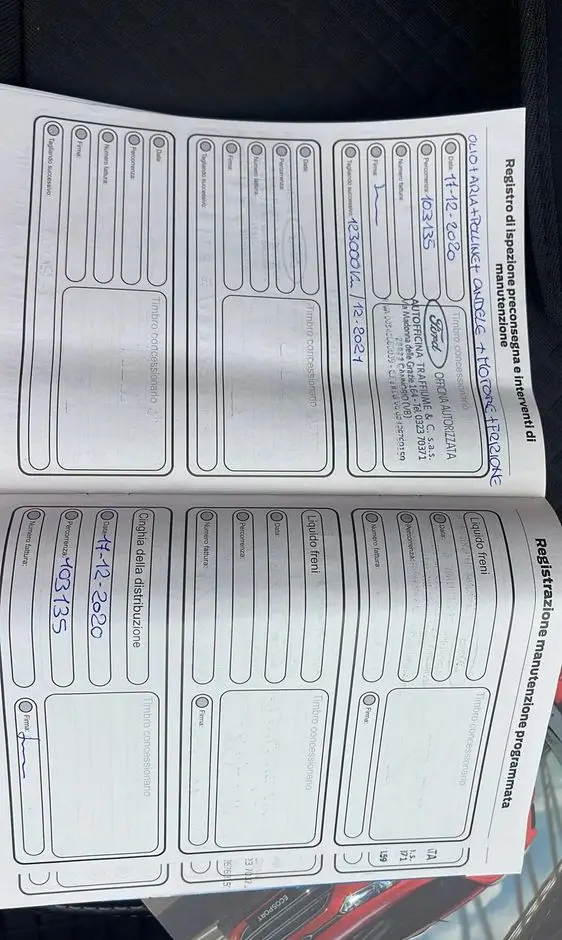 Registro di ispezione preconsegna e interventi di
manutenzione
OLIO + ARIA + POLLINE + CANDELE + MOTORE + FRIZIONE
Data: 17-12-2020
Percorrenza: 103135
Numero fattura:
Firma:
Tagliando successivo: 123000 Km / 12-2021
Timbro concessionario
Ford OFFICINA AUTORIZZATA
AUTOFFICINA TRAFFIUME & C. s.a.s.
Madonna delle Grazie, 164 - Tel. 0323 70371
Data:
Percorrenza:
Numero fattura:
Firma:
Tagliando successivo:
Timbro concessionario
Data:
Percorrenza:
Numero fattura:
Firma:
Tagliando successivo:
Timbro concessionario
Registrazione manutenzione programmata
Liquido freni
Data:
Percorrenza:
Numero fattura:
Timbro concessionario
Firma:
Liquido freni
Data:
Percorrenza:
Numero fattura:
Timbro concessionario
Firma:
Cinghia della distribuzione
Data: 17-12-2020
Percorrenza: 103135
Numero fattura:
Timbro concessionario
Firma:
ECOSPORT